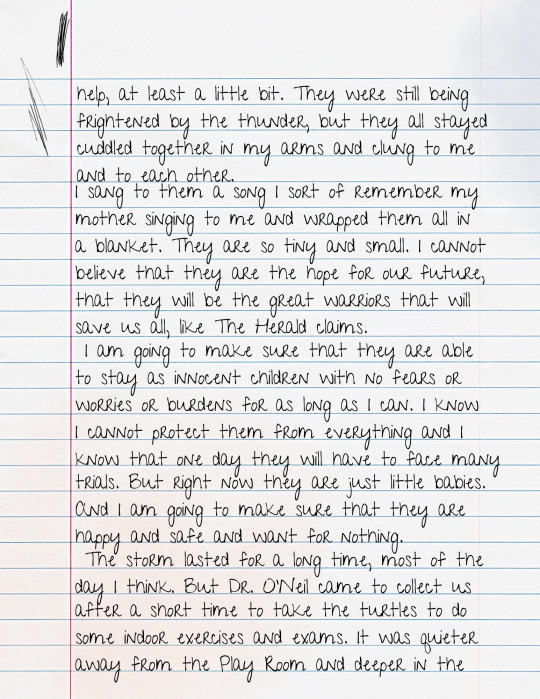 help, at least a little bit. They were still being
frightened by the thunder, but they all stayed
cuddled together in my arms and clung to me
and to each other.
I sang to them a song I sort of remember my
mother singing to me and wrapped them all in
a blanket. They are so tiny and small. I cannot
believe that they are the hope for our future,
that they will be the great warriors that will
save us all, like The Herald claims.
I am going to make sure that they are able
to stay as innocent children with no fears or
worries or burdens for as long as I can. I know
I cannot protect them from everything and I
know that one day they will have to face many
trials. But right now they are just little babies.
And I am going to make sure that they are
happy and safe and want for nothing.
The storm lasted for a long time, most of the
day I think. But Dr. O'Neil came to collect us
after a short time to take the turtles to do
some indoor exercises and exams. It was quieter
away from the Play Room and deeper in the